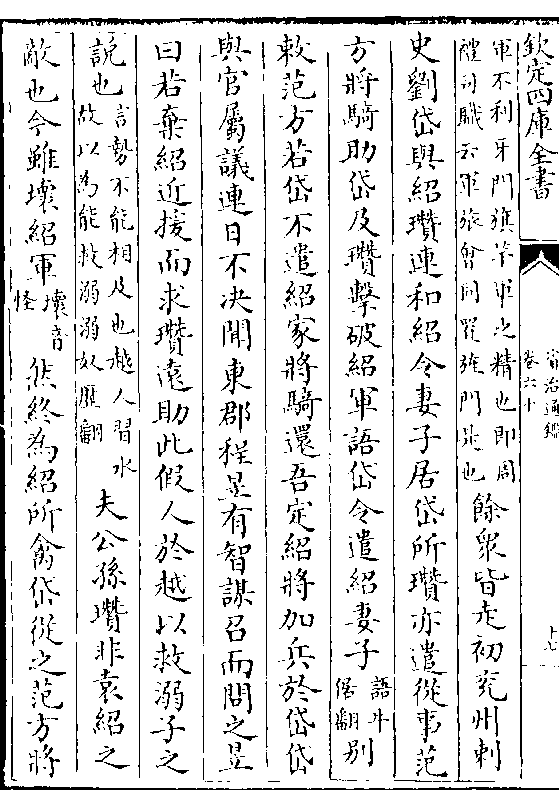 欽定四庫全書
資治通鑑
卷六十
十七
軍不利牙門旗竿軍之精也即周
禮司職云軍旅會同置旌門是也
餘衆皆走初兖州刺
史劉岱與紹瓚連和紹令妻子居岱所瓚亦遣從事范
方將騎助岱及瓚擊破紹軍語岱令遣紹妻子
語牛
倨翻
别
敕范方若岱不遣紹家將騎還吾定紹將加兵於岱岱
與官屬議連日不决聞東郡程昱有智謀召而問之昱
曰若棄紹近援而求瓚遠助此假人於越以救溺子之
說也
言勢不能相及也越人習水
故以為能救溺溺奴歴翻
夫公孫瓚非袁紹之
敵也今雖壞紹軍
壞音
怪
然終為紹所禽岱從之范方將